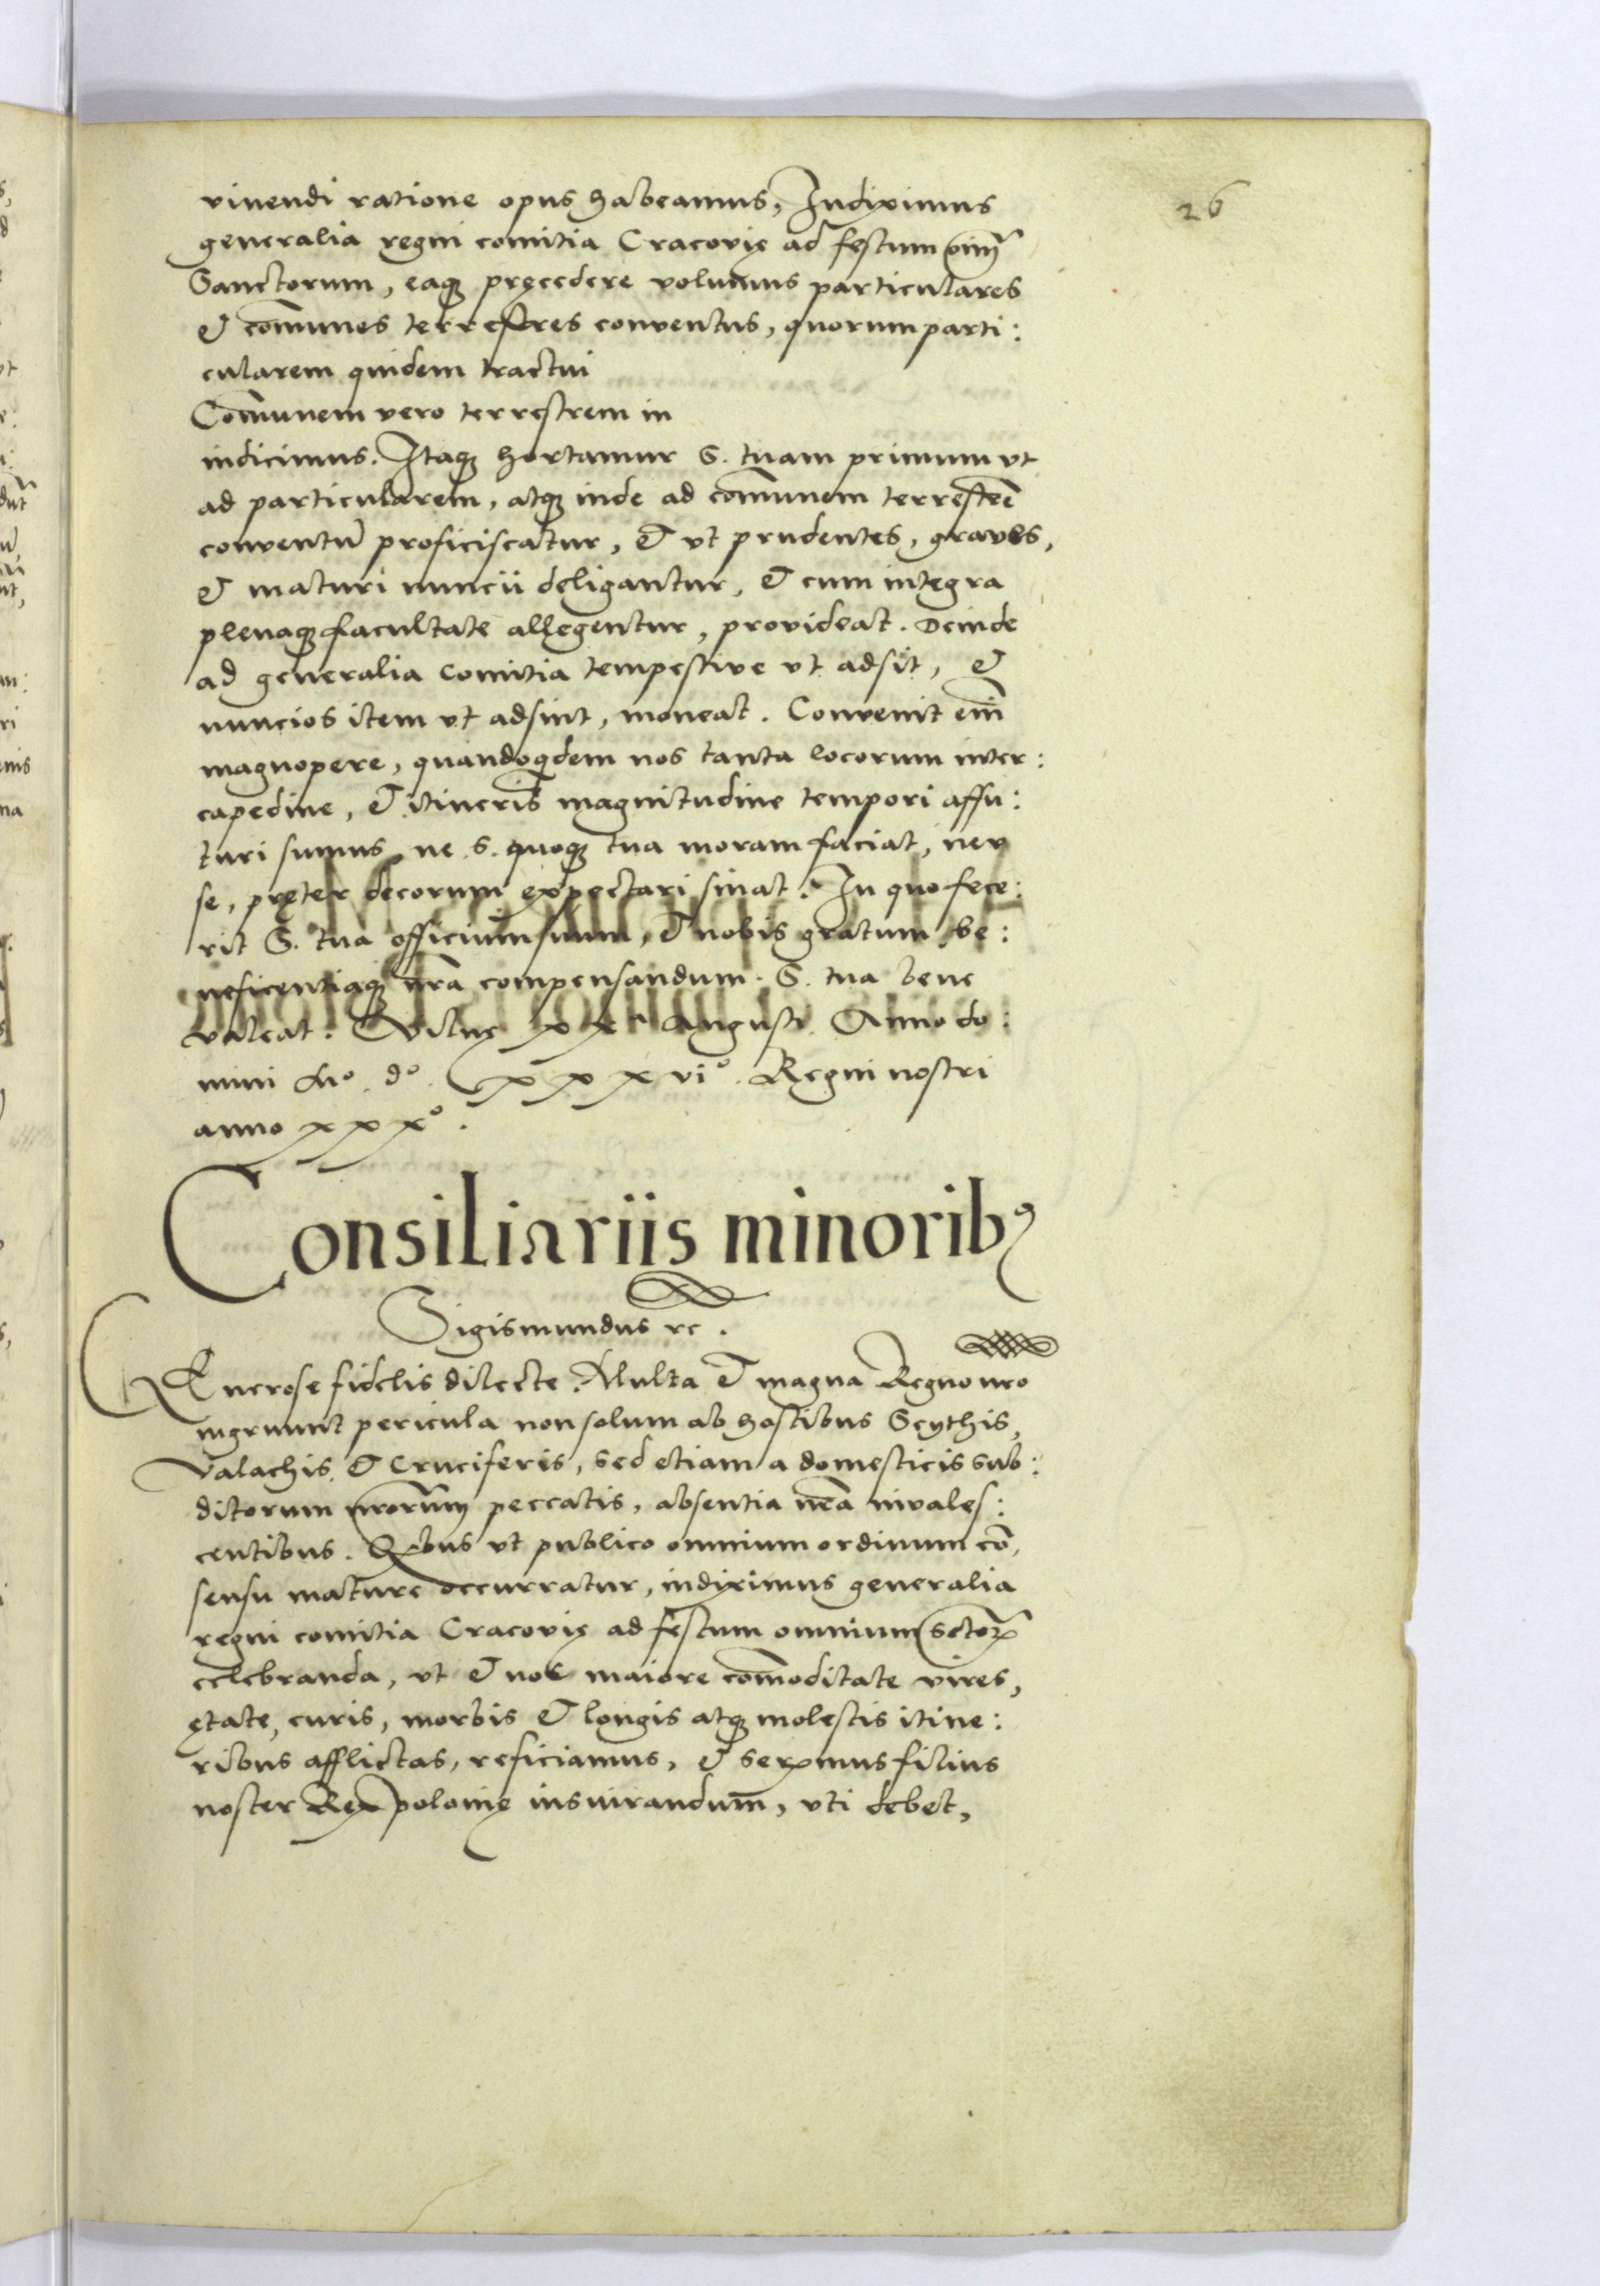 26
vivendi ratione opus habeamus, Indiximus
generalia regni comitia Cracovię ad festum oim̄
Sanctorum, eaqꝫ pręcedere volumus particulares
& com̄unes terrestres conventus, quorum parti:
cularem quidem tractui
Com̄unem vero terrestrem in
indicimus. Itaqꝫ hortamur S. tuam primum vt
ad particularem, atqꝫ inde ad com̄unem terrestrē
conventū proficiscatur, & vt prudentes, graves,
& maturi nuncii deligantur, & cum integra
plenaqꝫ facultate allegentur, provideat. Deinde
ad generalia comitia tempestive vt adsit, &
nuncios item vt adsint, moneat. Convenit em̄
magnopere, quandoqdem nos tanta locorum inter:
capedine, & itineris magnitudine tempori affu:
turi sumus, ne S. quoqꝫ tua moram faciat, nev
se, pręter decorum expectari sinat. In quo fece:
rit S. tua officium suum, & nobis gratum, be:
neficentiaqꝫ nr̄a compensandum. S. tua bene
valeat. Vilnę xx Augusti Anno do:
mini Mº. dº. xxxviº. Regni nostri
anno xxxº.
Consiliariis minoribꝰ
Sigismundus rc.
Generose fidelis dilecte. Multa & magna Regno nro
ingruunt pericula non solum ab hostibus Scythis,
Valachis & Cruciferis, sed etiam a domesticis sub:
ditorum nrorum peccatis, absentia nr̄a invales:
centibus. Qbus vt publico omnium ordinum cō
sensu mature occurratur, indiximus generalia
regni comitia Cracovię ad festum omnium sctoꝝ
celebranda, vt & nos maiore com̄oditate vires,
ętate, curis, morbis & longis atqꝫ molestis itine:
ribus afflictas, reficiamus, & serᵐus filius
noster Rex polonię insiurandum, vti debet,